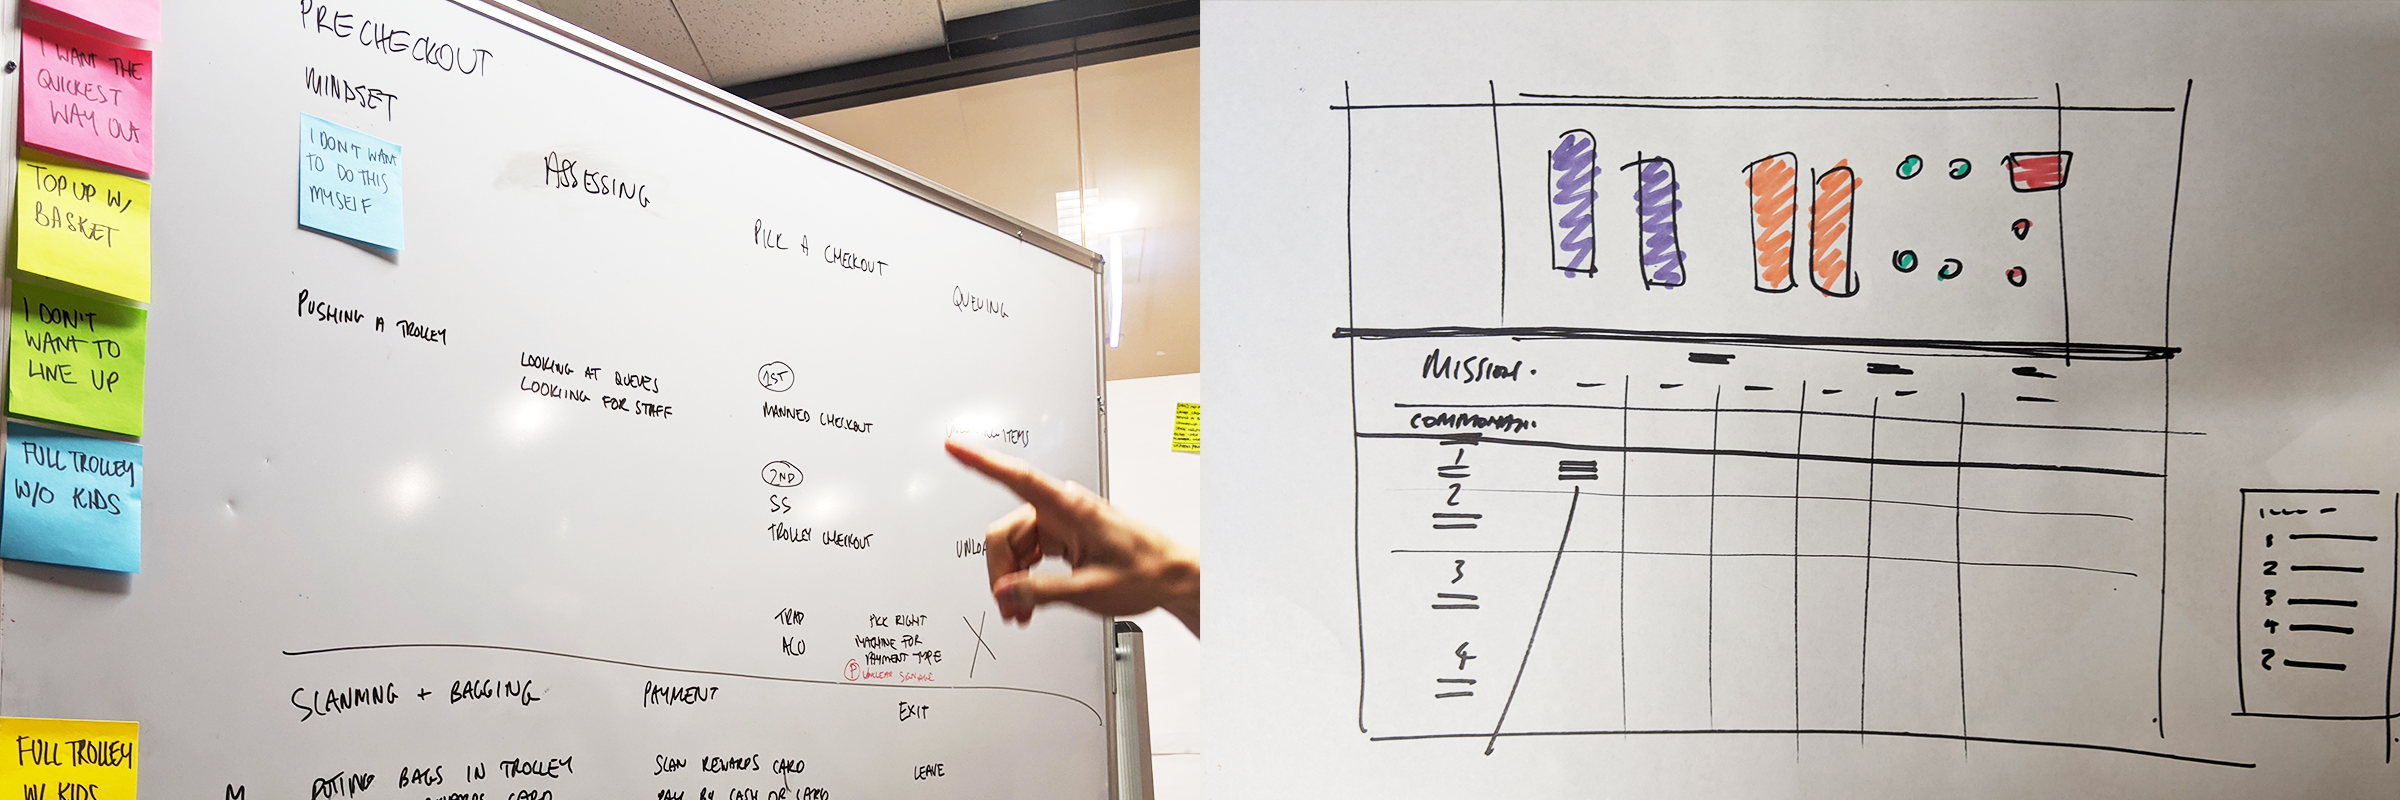 I WANT THE
QUICKEST
WAY OUT
TOP UP W/
BASKET
I DON'T
WANT TO
LINE UP
FULL TROLLEY
W/O KIDS
FULL TROLLEY
W/ KIDS
PRECHECKOUT
MINDSET
I DON'T WANT
TO DO THIS
MYSELF
PUSHING A TROLLEY
ASSESSING
LOOKING AT QUEUES
LOOKING FOR STAFF
PICK A CHECKOUT
1ST
MANNED CHECKOUT
2ND
SS
TROLLEY CHECKOUT
TRAD
ACO
PICK RIGHT
MACHINE FOR
PAYMENT TYPE
P UNCLEAR SIGNAGE
QUEUING
ITEMS
X
SCANNING + BAGGING
PUTTING BAGS IN TROLLEY
CARD
PAYMENT
SCAN REWARDS CARD
PAY BY CASH OR CARD
EXIT
LEAVE
MISSION.
1
2
3
4
1
2
3
4
2